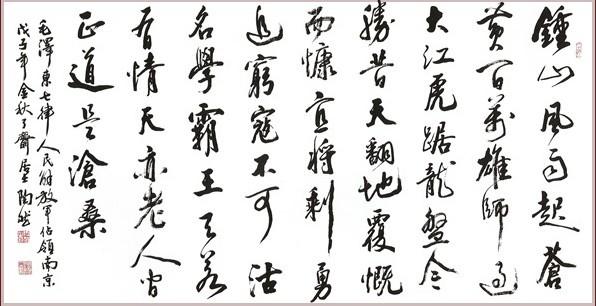 鍾山風雨起蒼
黃百萬雄師過
大江虎踞龍盤今
勝昔天翻地覆慨
而慷宜將剩勇
追窮寇不可沽
名學霸王天若
有情天亦老人間
正道是滄桑
毛澤東七律人民解放軍佔領南京
戊子年金秋齋陶然